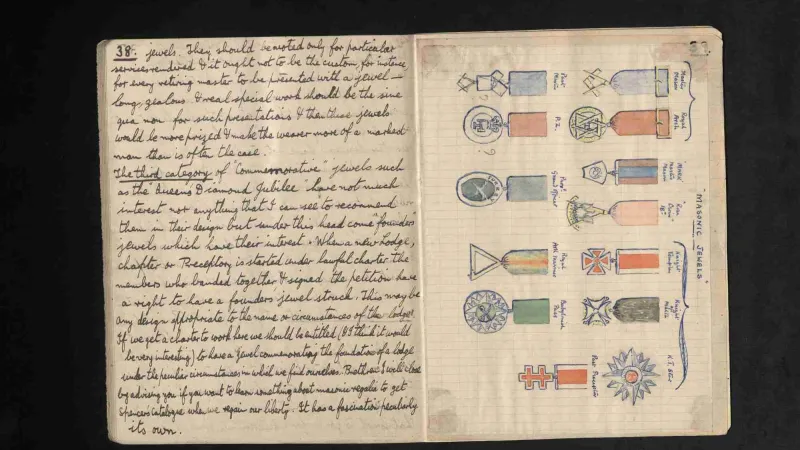 38. jewels. They should be voted only for particular
services rendered & it ought not to be the custom, for instance,
for every retiring master to be presented with a jewel —
long, zealous & real special work should be the sine
qua non for such presentations & then these jewels
would be more prized & make the wearer more of a marked
man than is often the case.
The third category of "Commemorative" jewels such
as the "Queen's Diamond Jubilee" have not much
interest nor anything that I can see to recommend
them in their design but under this head come "founders"
jewels which have their interest. When a new Lodge,
chapter or Preceptory is started under lawful charter the
members who banded together & signed the petition have
a right to have a founders jewel struck. This may be
any design appropriate to the name or circumstances of the lodge.
If we get a charter to work here we should be entitled, (& I think it would
be very interesting) to have a jewel commemorating the foundation of a lodge
under the peculiar circumstances in which we find ourselves. Brethren I will close
by advising you if you want to learn something about masonic regalia to get
Spencers catalogue when we regain our liberty. It has a fascination peculiarly
its own.
"MASONIC JEWELS"
Master Mason
Royal Arch
Mark Master Mason
Rose Croix 18°
Knight Templar
Knight of Malta
K.T. Star
Past Master
P.Z.
Prov! Grand Officer
Royal Ark Mariner
Past Preceptor